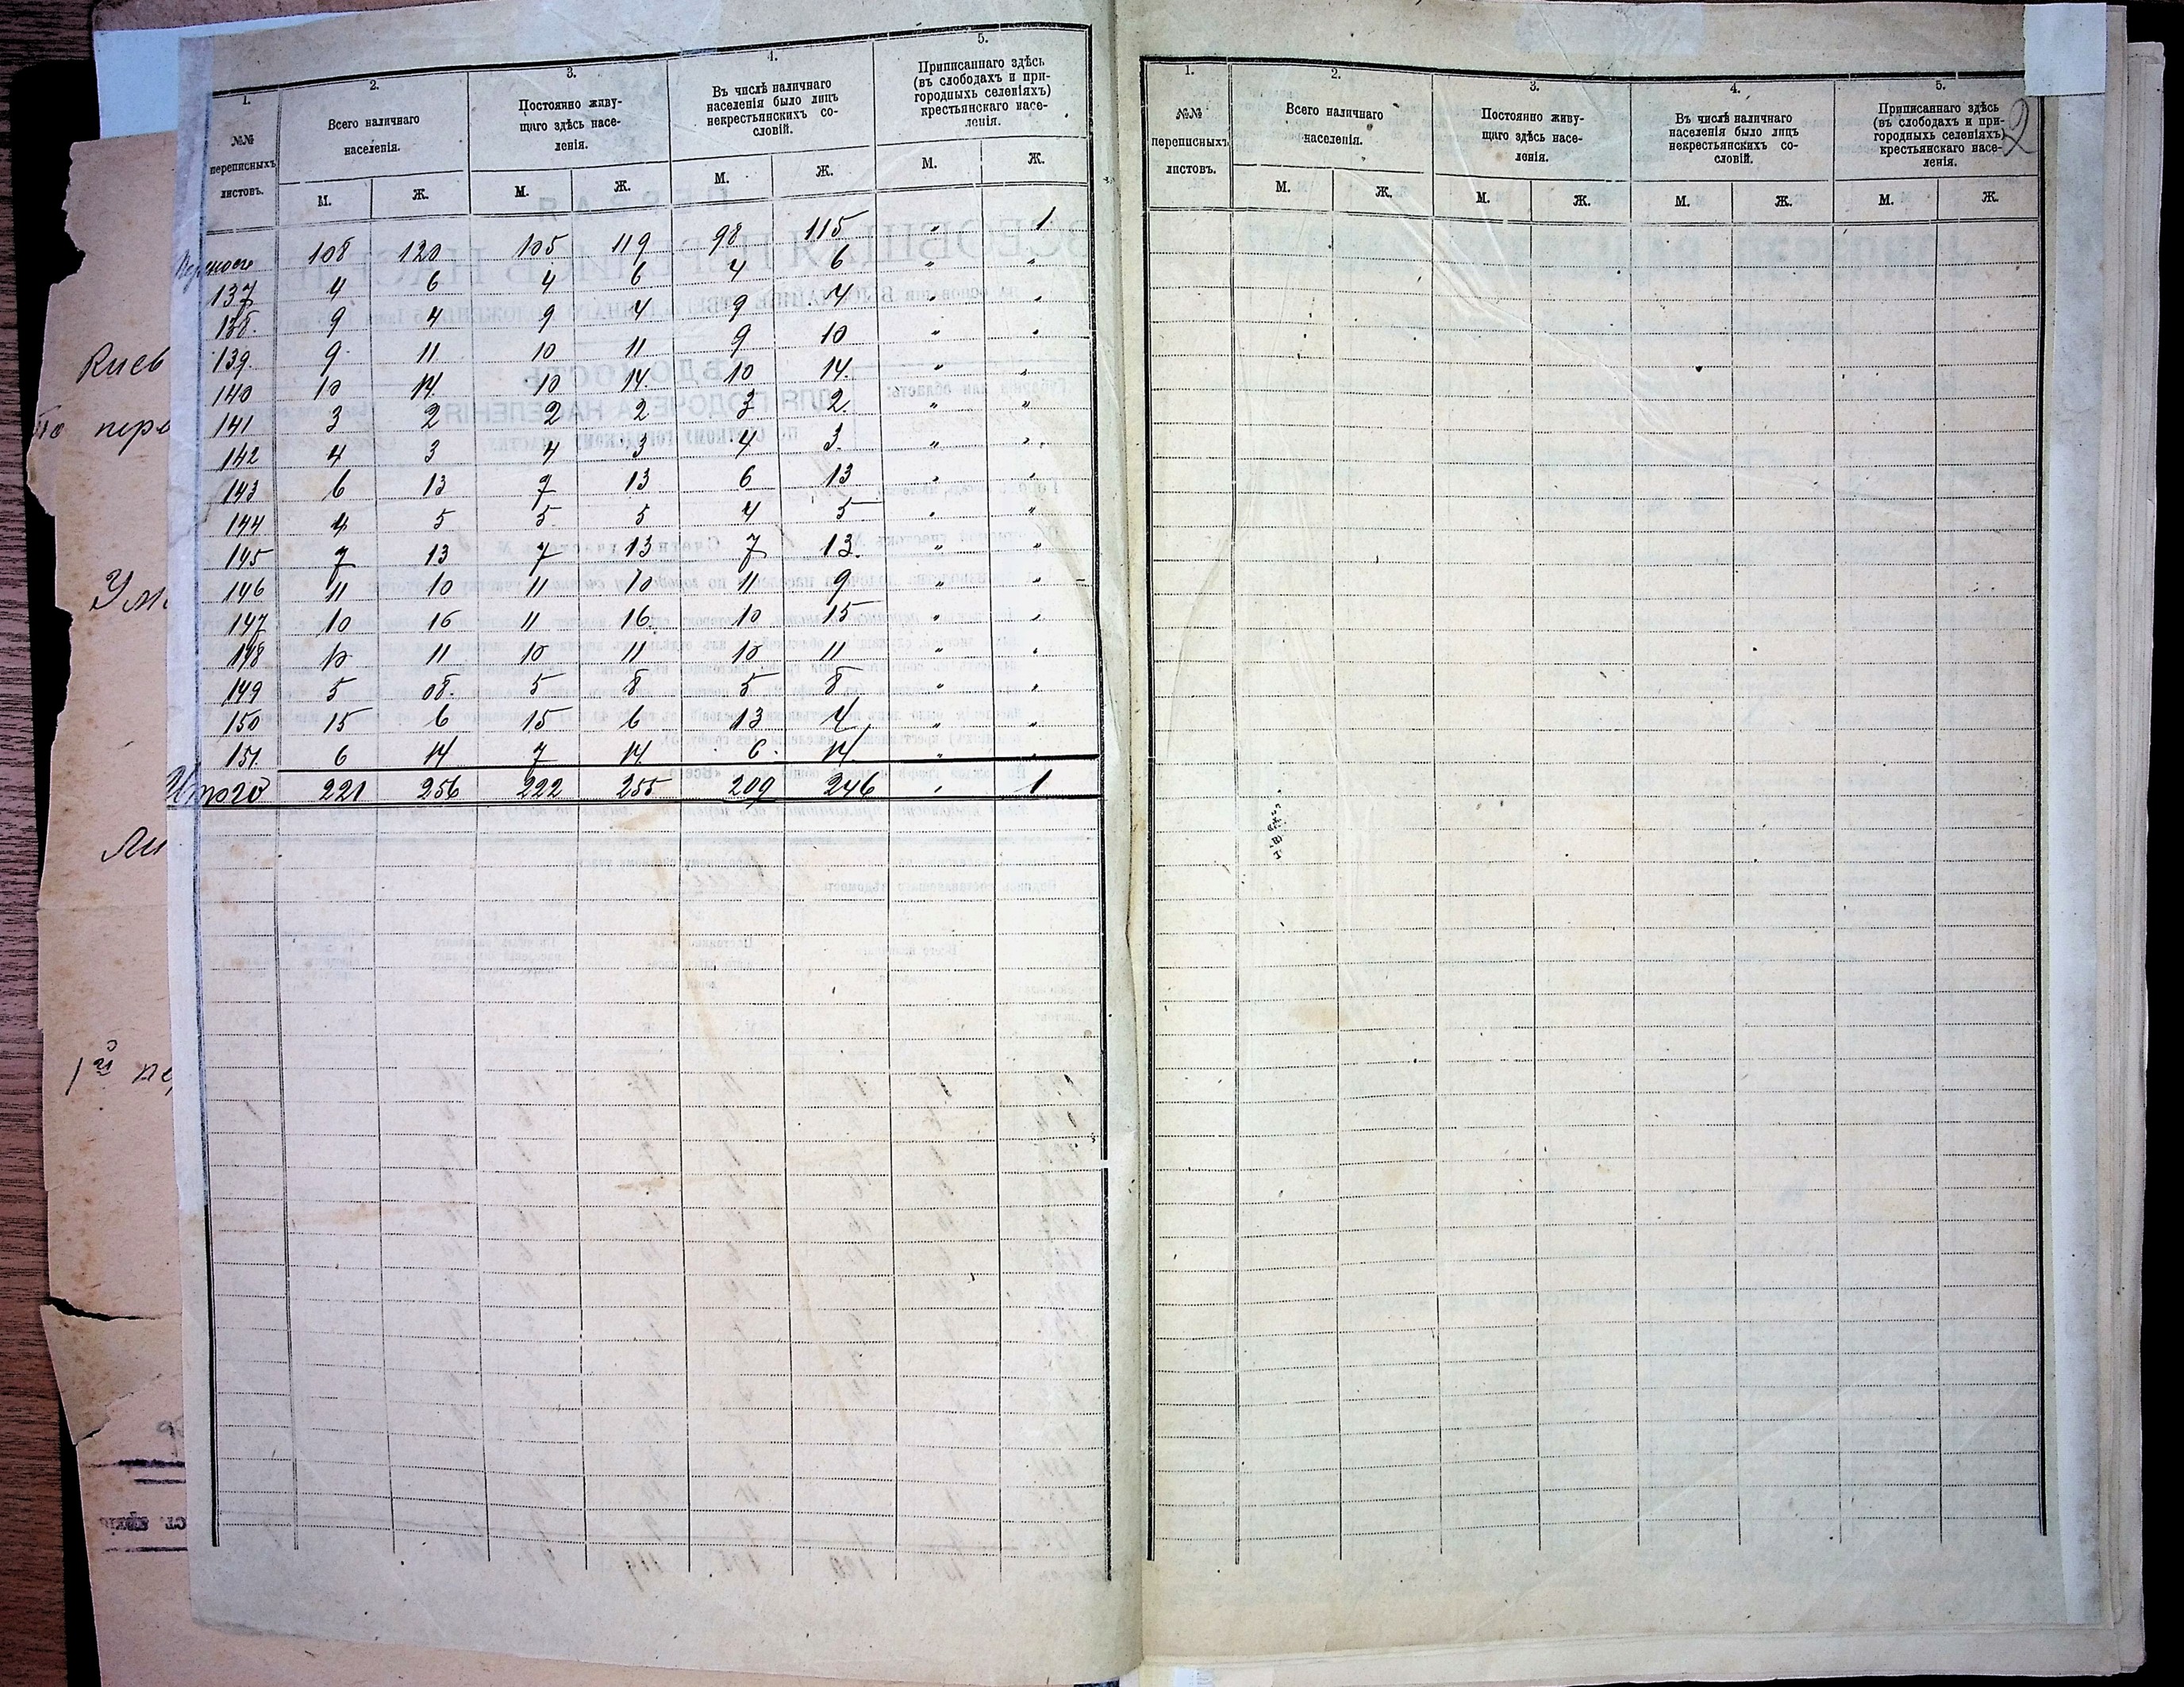 1. 2. 3. 4. 5.
№№ переписныхъ листовъ.
Всего наличнаго населенія.
Постоянно живущаго здѣсь населенія.
Въ числѣ наличнаго населенія было лицъ некрестьянскихъ сословій.
Приписаннаго здѣсь (въ слободахъ и пригородныхъ селеніяхъ) крестьянскаго населенія.
М. Ж. М. Ж. М. Ж. М. Ж.
108 120 105 119 98 115 „ 1
137 4 6 4 6 4 6 „ „
138. 9 4 9 4 9 4 „ „
139. 9 11 10 11 9 10 „ „
140 10 14. 10 14. 10 14. „ „
141 3 2 2 2 3 2. „ „
142 4 3 4 3 4 3. „ „
143 6 13 7 13 6 13 „ „
144 4 5 5 5 4 5 „ „
145 7 13 7 13 7 13. „ „
146 11 10 11 10 11 9 „ „
147 10 16 11 16. 10 15 „ „
148 10 11 10 11 10 11 „ „
149 5 08. 5 8 5 8 „ „
150 15 6 15 6 13 4 „ „
151. 6 14 7 14. 6. 14. „ „
Итого 221 256 222 255 209 246 „ 1
Киев
По пере
Ума
1й пе
1. 2. 3. 4. 5.
№№ переписныхъ листовъ.
Всего наличнаго населенія.
Постоянно живущаго здѣсь населенія.
Въ числѣ наличнаго населенія было лицъ некрестьянскихъ сословій.
Приписаннаго здѣсь (въ слободахъ и пригородныхъ селеніяхъ) крестьянскаго населенія.
2
М. Ж. М. Ж. М. Ж. М. Ж.